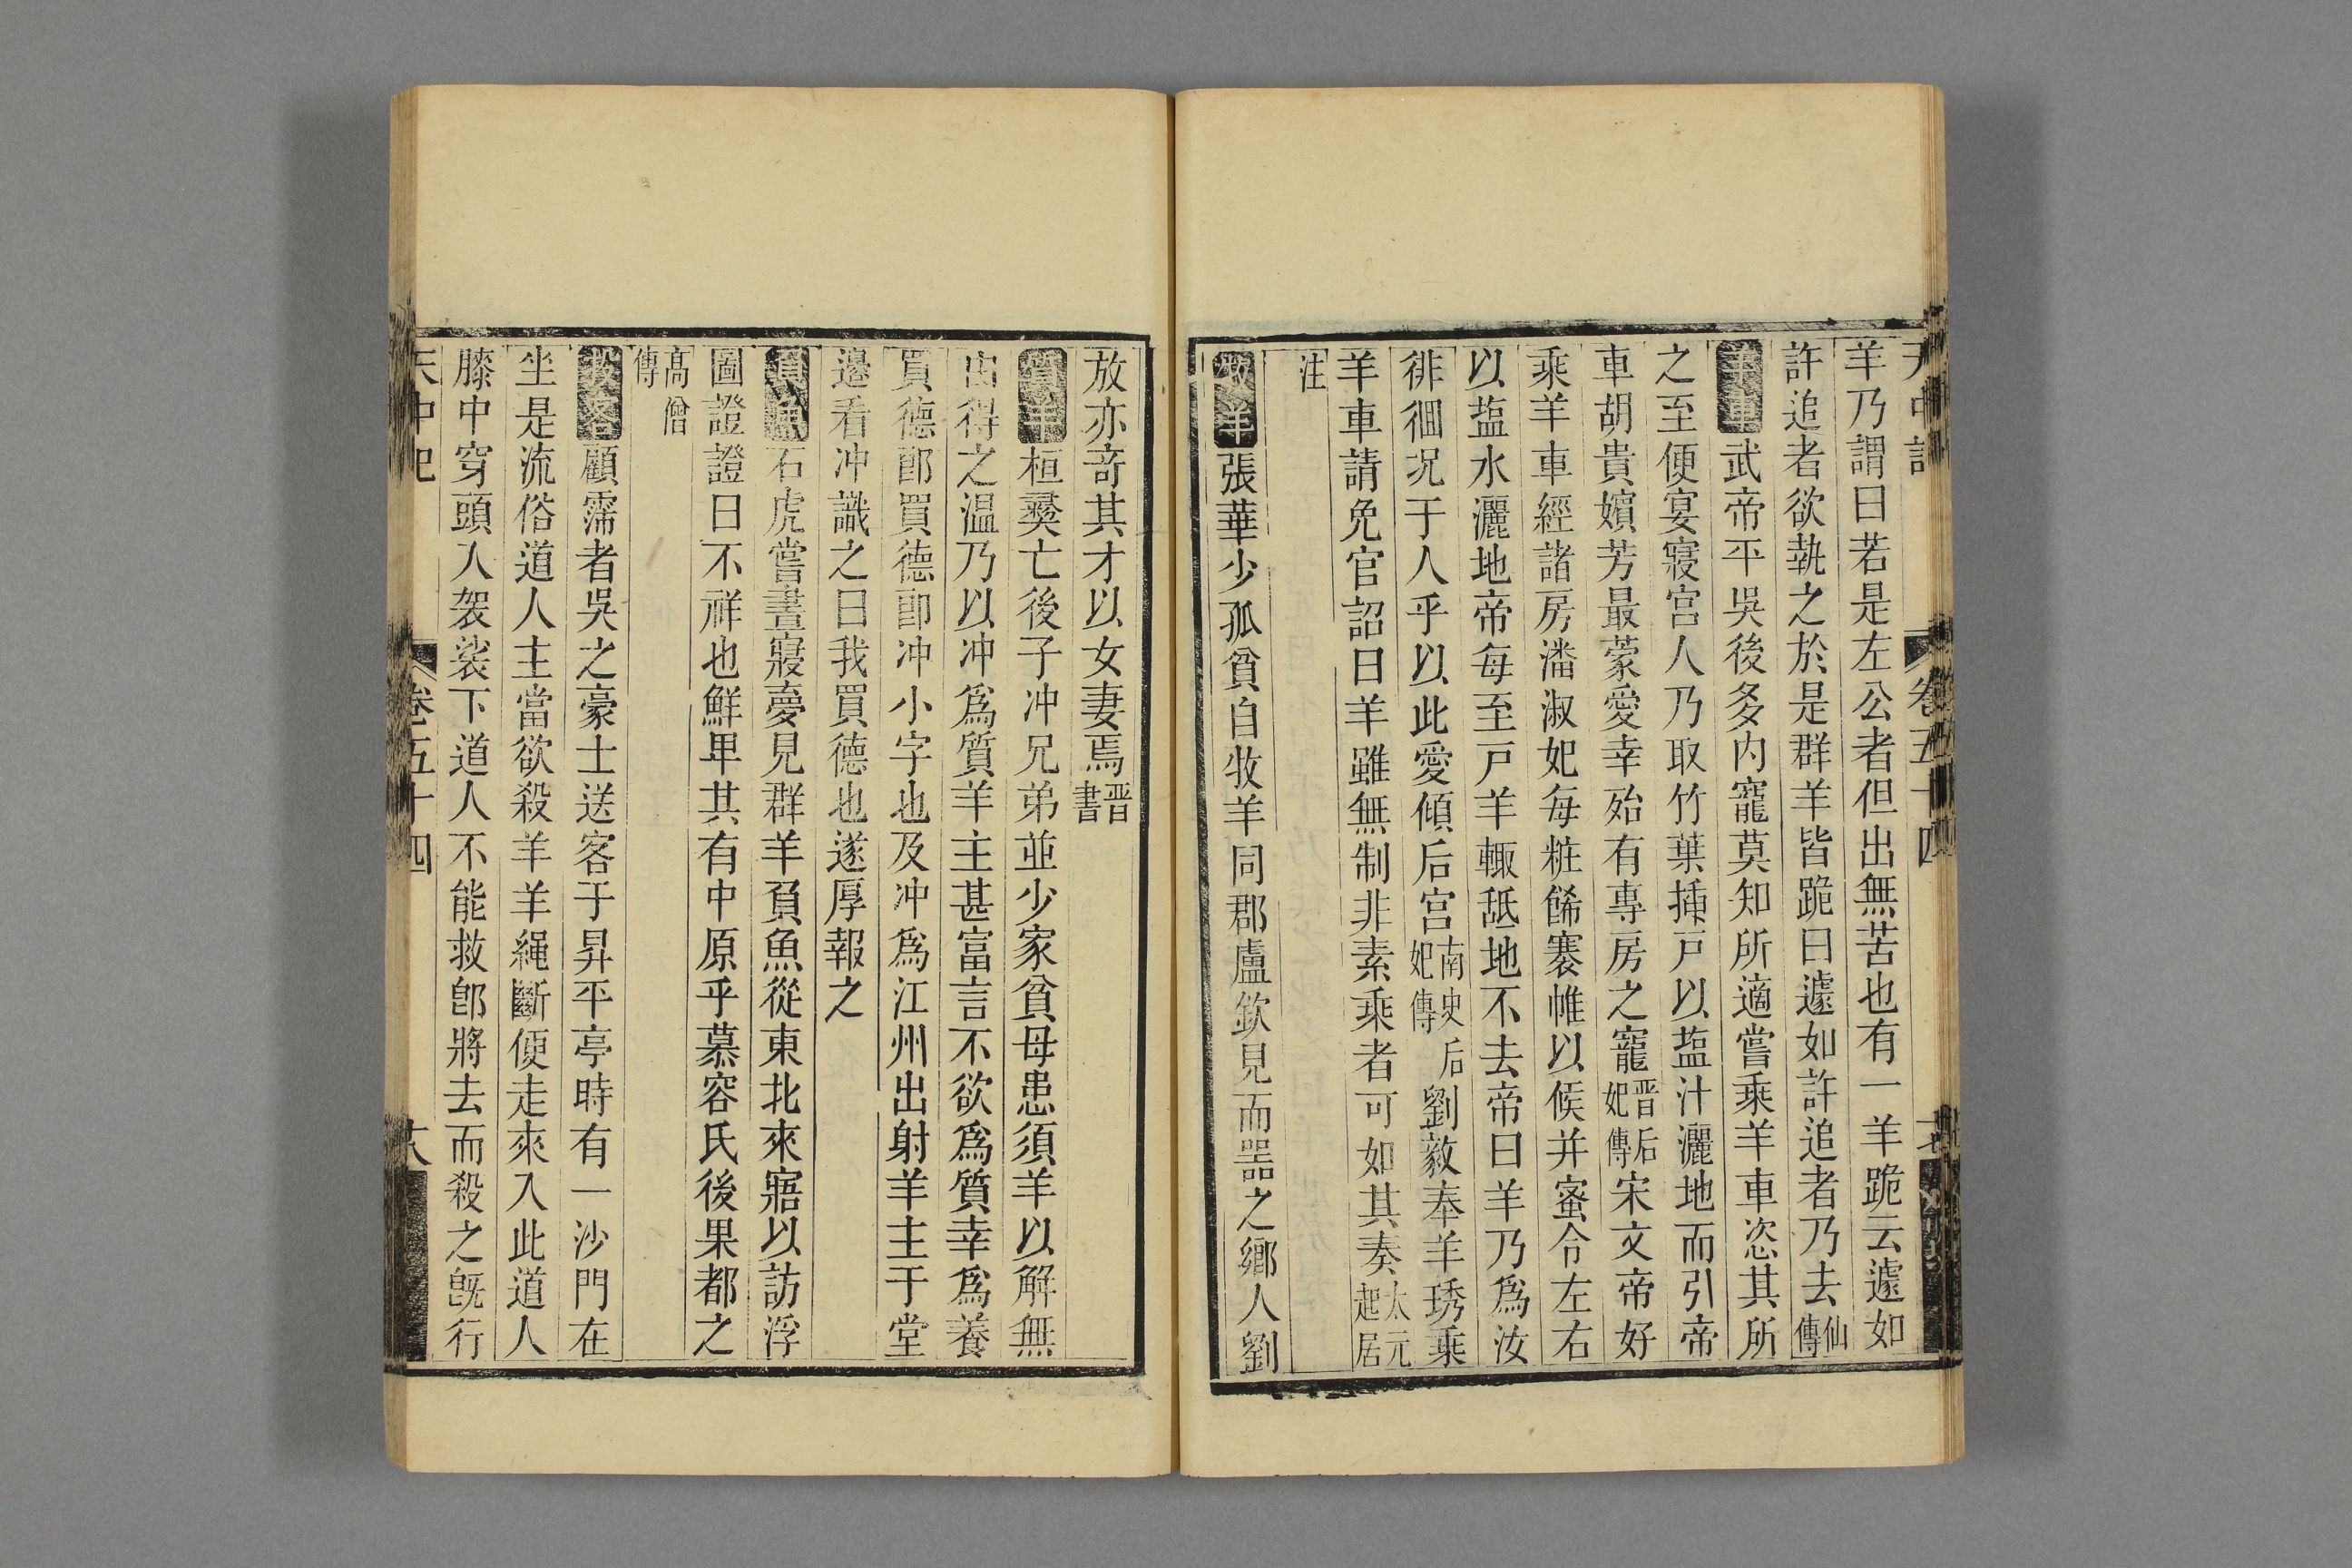 羊乃謂曰若是左公者但出無苦也有一羊跪云遽如
許追者欲執之於是群羊皆跪曰遽如許追者乃去仙傳
羊車武帝平吳後多内寵莫知所適嘗乘羊車恣其所
之至便宴寢宫人乃取竹葉揷戸以塩汁灑地而引帝
車胡貴嬪芳最蒙愛幸殆有專房之寵晋后妃傳宋文帝好
乘羊車經諸房潘淑妃每粧餙褰帷以候并蜜令左右
以塩水灑地帝每至戸羊輙舐地不去帝曰羊乃爲汝
徘徊况于人乎以此愛傾后宫南史后妃傳劉毅奉羊琇乘
羊車請免官詔曰羊雖無制非素乘者可如其奏太元起居
注
牧羊張華少孤貧自牧羊同郡盧欽見而噐之鄉人劉
放亦竒其才以女妻焉晋書
質羊桓彛亡後子冲兄弟並少家貧母患須羊以解無
由得之温乃以冲爲質羊主甚富言不欲爲質幸爲養
買德郎買德郎冲小字也及冲爲江州出射羊主于堂
邉看冲識之曰我買德也遂厚報之
負魚石虎嘗晝寢夢見群羊負魚從東北來寤以訪浮
圖證證曰不祥也鮮卑其有中原乎慕容氏後果都之
高僧傳
投客顧霈者吳之豪士送客于昇平亭時有一沙門在
坐是流俗道人主當欲殺羊羊繩斷便走來入此道人
膝中穿頭入袈裟下道人不能救郎將去而殺之旣行
天中記 卷五十四 十八